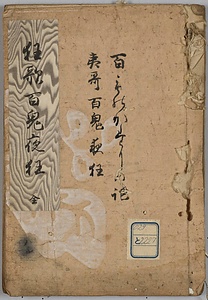 百ものかたりの記
夷哥百鬼夜狂
狂歌百鬼夜狂 全